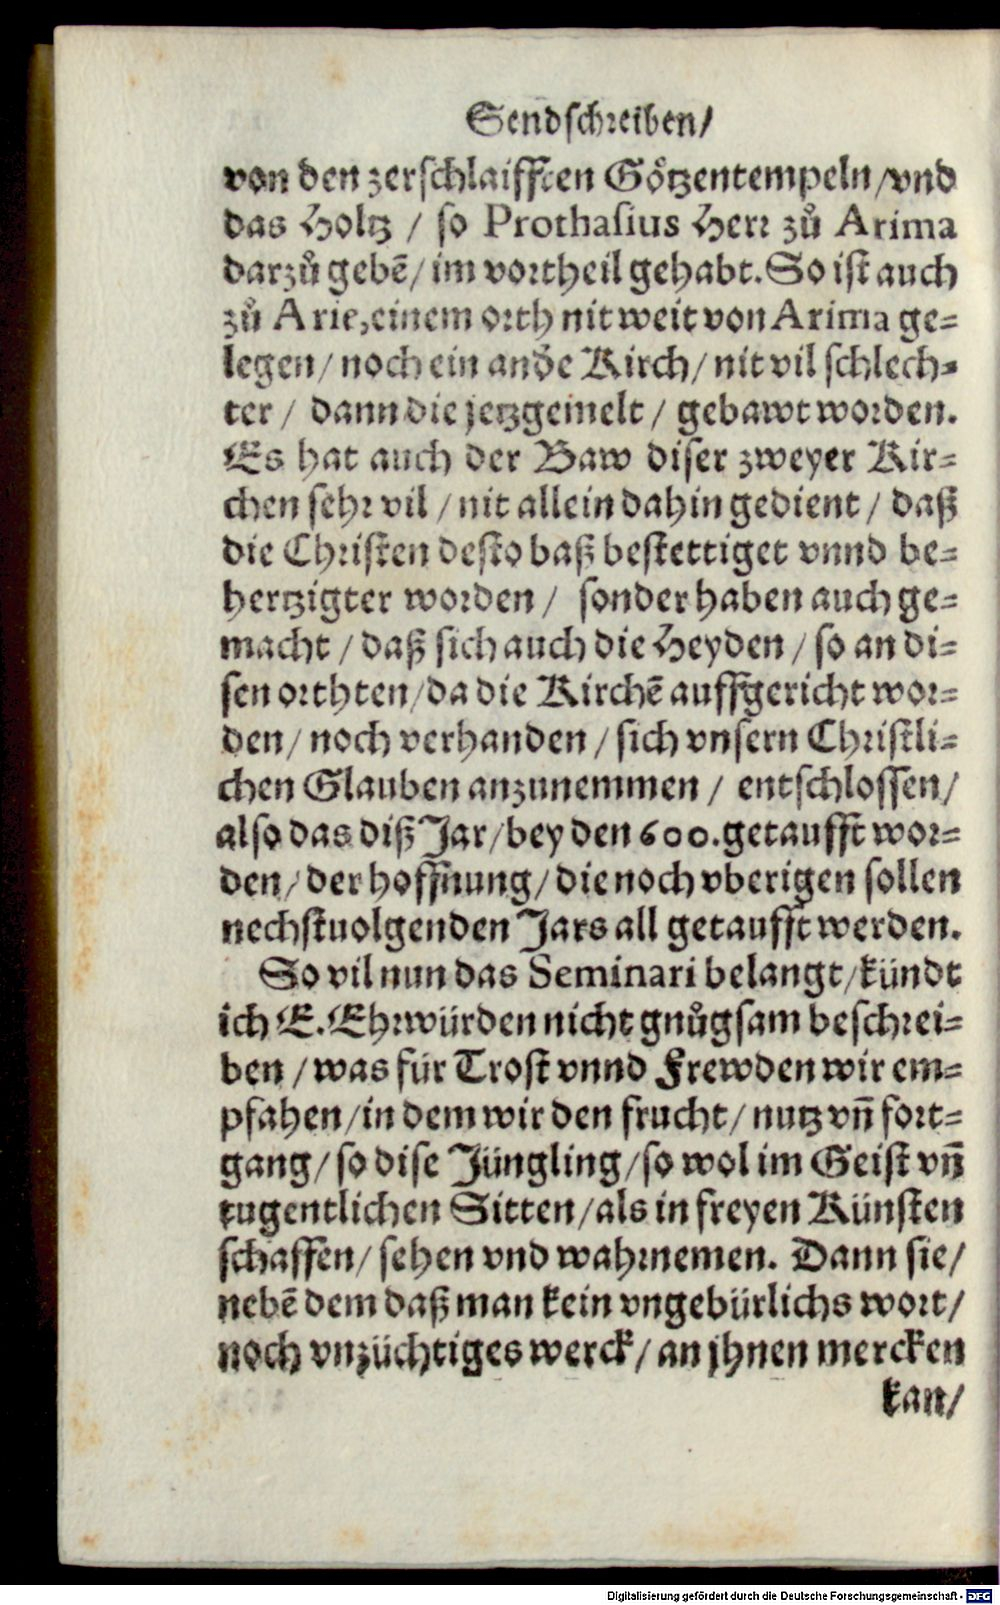 Sendschreiben/
von den zerschlaifften Goͤtzentempeln/vnd
das Holtz / so Prothasius Herr zuͦ Arima
darzuͦ gebẽ/im vortheil gehabt. So ist auch
zuͦ Arie, einem orth nit weit von Arima ge=
legen/ noch ein anđe Kirch/ nit vil schlech=
ter / dann die jetzgemelt / gebawt worden.
Es hat auch der Baw diser zweyer Kir=
chen sehr vil / nit allein dahin gedient / daß
die Christen desto baß bestettiget vnnd be=
hertzigter worden / sonder haben auch ge=
macht / daß sich auch die Heyden / so an di=
sen orthten/da die Kirchẽ auffgericht wor=
den/ noch verhanden / sich vnsern Christli=
chen Glauben anzunemmen / entschlossen/
also das diß Jar/bey den 600. getaufft wor=
den/ der hoffnung/ die noch vberigen sollen
nechstuolgenden Jars all getaufft werden.
So vil nun das Seminari belangt/kündt
ich E. Ehrwürden nicht gnuͦgsam beschrei=
ben / was für Trost vnnd Frewden wir em=
pfahen/in dem wir den frucht/ nutz vñ fort=
gang/ so dise Jüngling/so wol im Geist vñ
tugentlichen Sitten/als in freyen Künsten
schaffen/ sehen vnd wahrnemen. Dann sie/
nebẽ dem daß man kein vngebürlichs wort/
noch vnzüchtiges werck/ an jhnen mercken
kan/
Digitalisierung gefördert durch die Deutsche Forschungsgemeinschaft - DFG